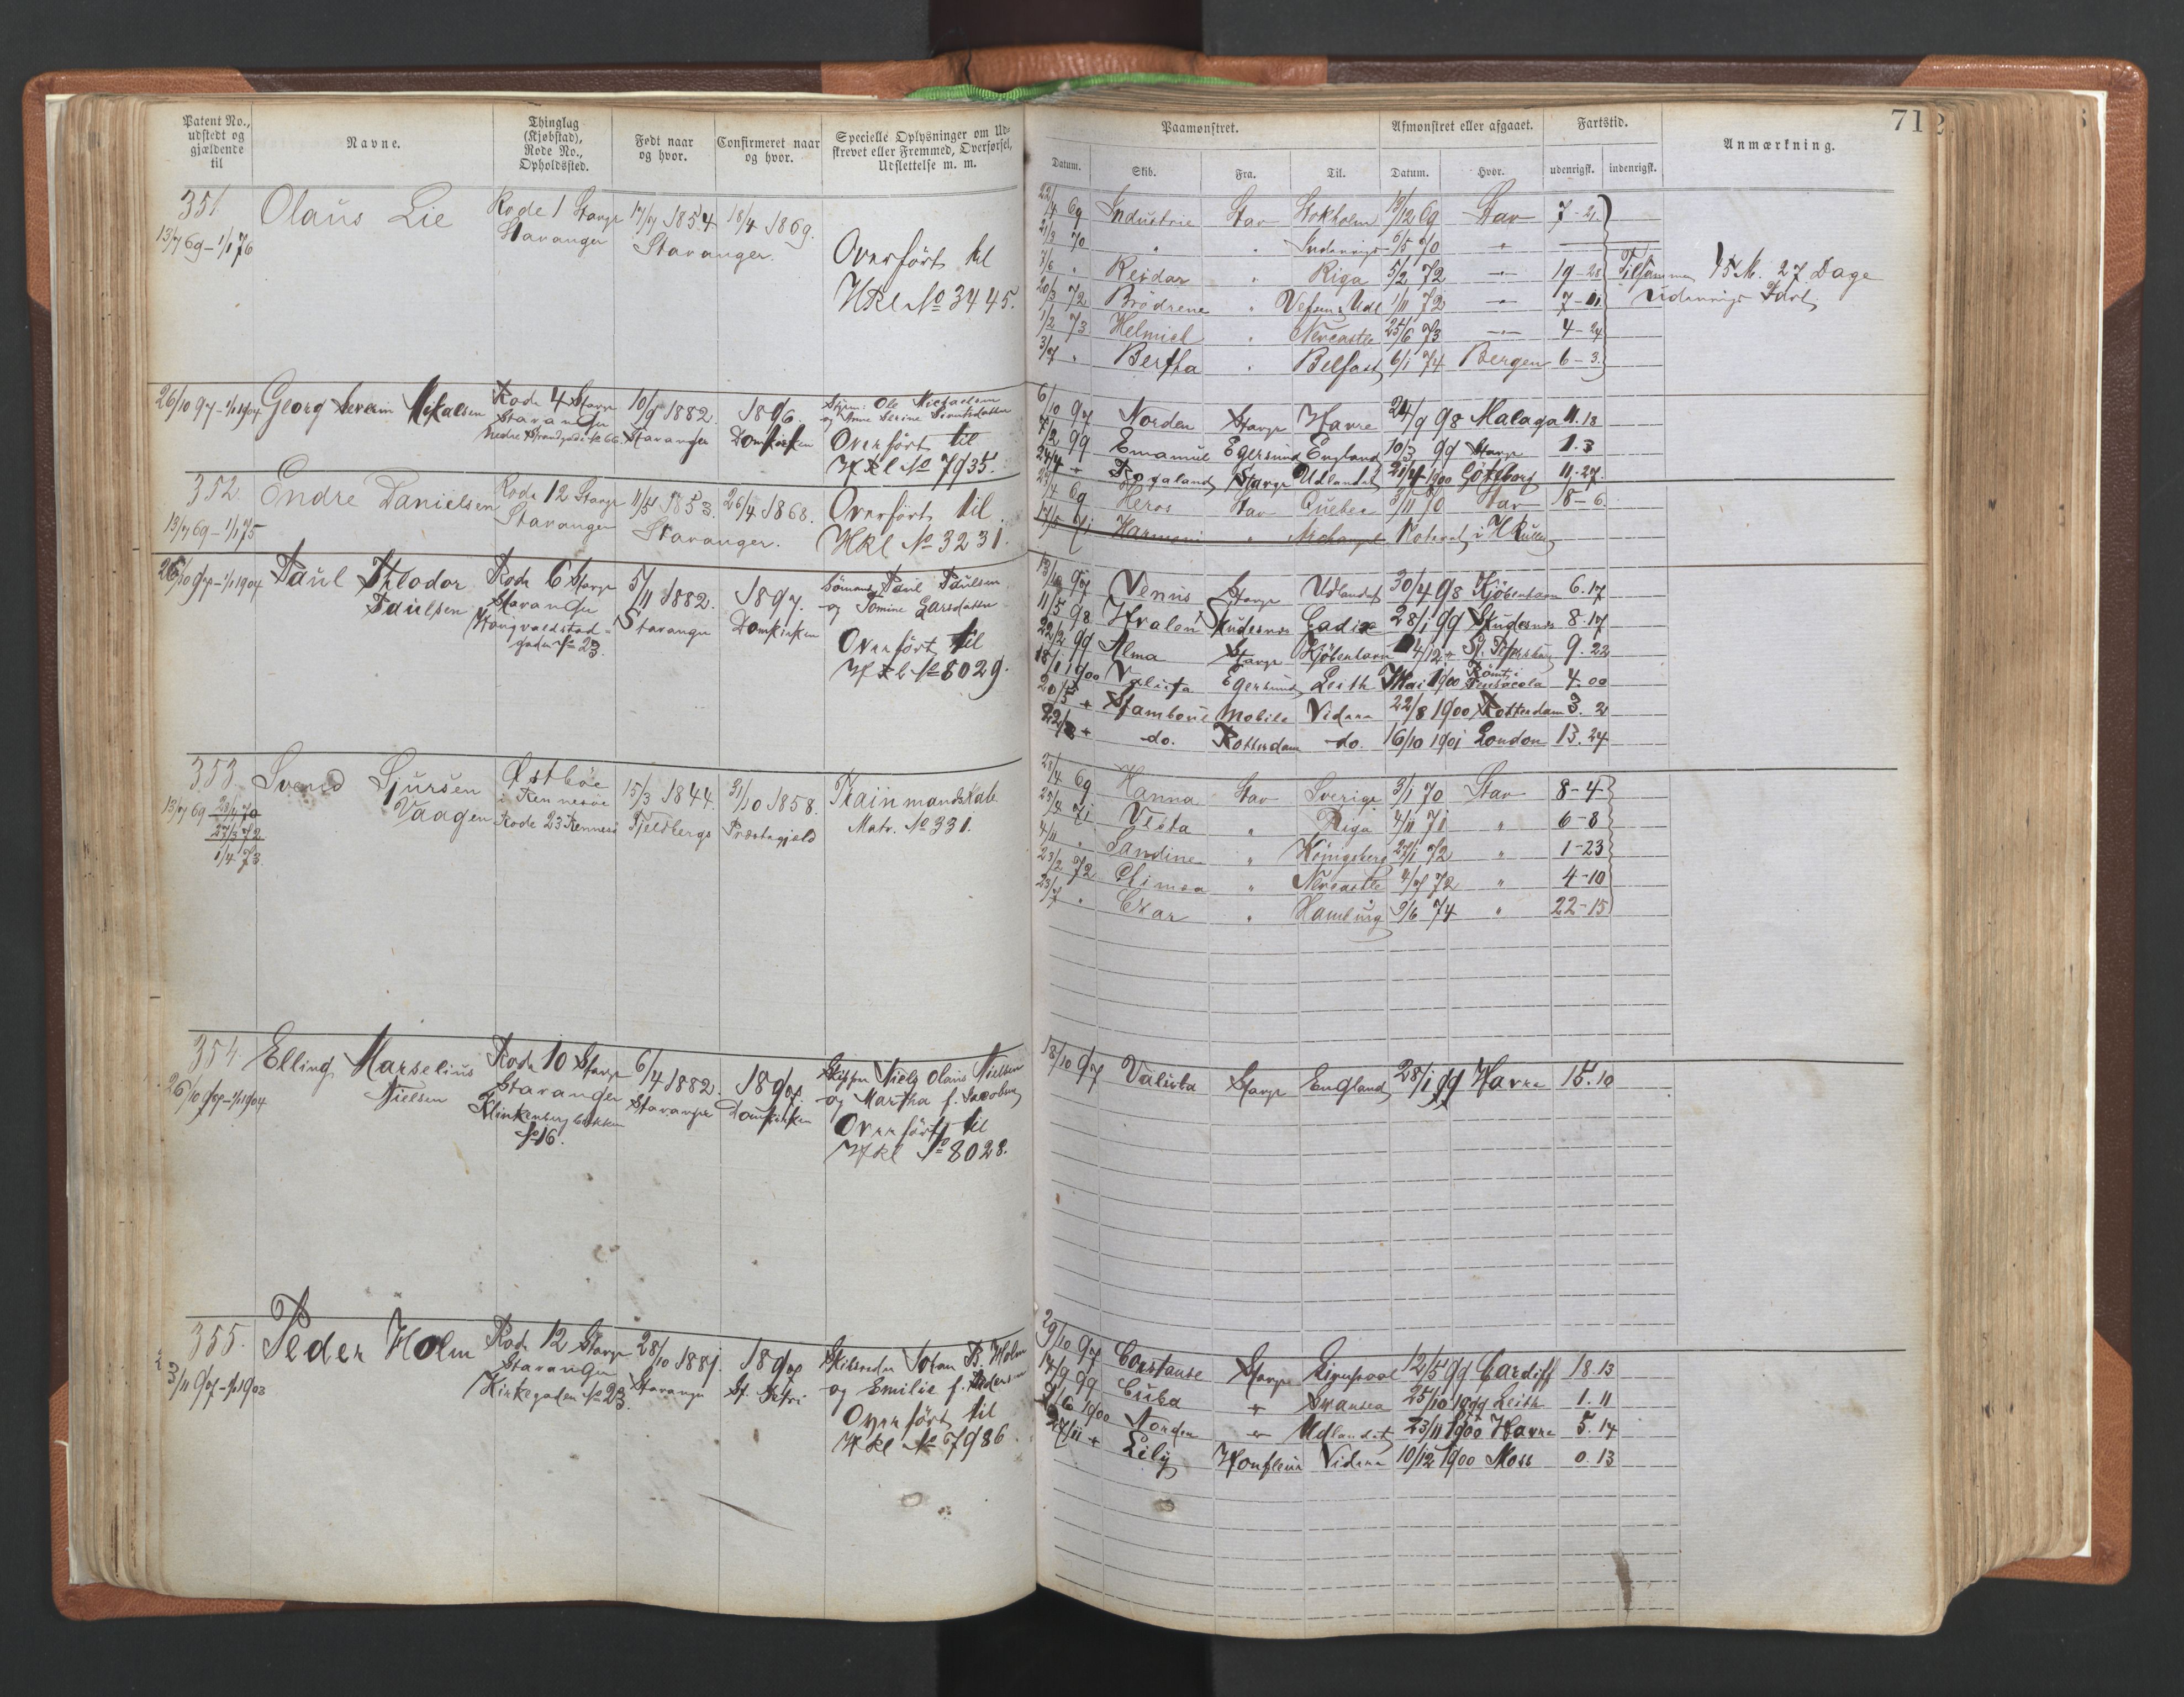 Patent No., udstedt og gjældende til
Navne.
Thinglag (Kjøbstad), Rode No., Opholdssted.
Født naar og hvor.
Confirmeret naar og hvor.
Specielle Oplysninger om Udskrevet eller Fremmed, Overførsel, Udslettelse m. m.
Paamønstret.
Afmønstret eller afgaaet.
Fartstid.
Anmærkning.
71
Datum. Skib. Fra. Til. Datum. Hvor. udenrigsk. indenrigsk.
351 Olaus Lie Rode 1 Stavgr 17/7 1854 18/4 1869.
13/7 69 - 1/1 76 Stavanger Stavanger.
Overført til
Hkl No 3445.
22/4 69 Industrie Stav Stokholm 13/12 69 Stav 7-21
21/3 70 " " Indenrigs 6/5 70 "
7/6 " Reidar " Riga 5/2 72 " 19-28
20/3 72 Brødrene " Vefsen & Udl 1/11 72 " 7-11
1/2 73 Helmich " Newcastle 25/6 73 " 4-24
3/7 " Bertha " Belfast 6/1 74 Bergen 6-3
Tilsammen 45 M. 27 Dage
udenrigs Fart
26/10 97 - 1/1 1904 Georg Severin Mikalsen Rode 4 Stavgr 10/9 1882. 1896.
Stavanger
Nedre Strandgade No 66 Stavanger Domkirken
Ole Michaelsen
og Anne Serine
Overført til
Hkl No 7935.
6/10 97 Norden Stavgr Havre 24/9 98 Malaga 11.18
7/2 99 Emanuel Egersund England 10/3 99 Stavgr 1.3
24/4 + Rogaland Stavgr Udlandet 21/4 1900 Gøteborg 11.27.
352. Endre Danielsen Rode 12 Stavgr 11/5 1853. 26/4 1868.
13/7 69 - 1/1 75 Stavanger Stavanger.
Overført til
Hkl No 3231.
23/4 69 Heros Stav Quebec 3/11 70 Stav 18-6
17/5 71 Harmoni " Archangel Noteret i H Rullen
26/10 97 - 1/1 1904 Paul Theodor Rode 6 Stavgr 5/11 1882. 1897.
Paulsen Stavanger Stavanger Domkirken
Kongvoldstad-
gaden No 23.
Sømand Paul Paulsen
og Tomine Larsdatter
Overført til
Hkl No 8029.
13/10 97 Venus Stavgr Udlandet 30/4 98 Kjøbenhavn 6.17
11/5 98 Hvalen Skudesnes Cadix 28/1 99 Skudesnes 8.17
22/2 99 Alma Stavgr Kjøbenhavn 14/12 + St. Petersburg 9.22
18/1 1900 Valista Egersund Leith Mai 1900 Rømt i Pensacola 4.00
20/5 + Stamboul Mobile Videre 22/8 1900 Rotterdam 3. 2
22/8 + do. Rotterdam do. 16/10 1901 London 13.24
353. Svend Sjursen Østbøe 15/3 1844. 31/10 1858.
Vaagen i Rennesøe
Rode 23 Rennesø Fjeldberge Præstegjeld
13/7 69 28/4 70
27/3 72
1/4 73.
Trainmandskab
Matr. No 331.
28/4 69 Hanna Stav Sverige 3/1 70 Stav 8-4
25/4 71 Vesta " Riga 4/11 71 " 6-8
4/11 " Sandine " Kønigsberg 27/1 72 " 1-23
23/2 72 Chimæa " Newcastle 4/7 72 " 4-10
23/7 " Czar " Hamburg 9/6 74 " 22-15
354. Elling Marselius Rode 10 Stavgr 6/4 1882. 1897.
26/10 97 - 1/1 1904 Nielsen Stavanger Stavanger Domkirken
Klinkenbergbakken
No 16.
Skipper Niels Olaus Nielsen
og Martha f. Jacobsen
Overført til
Hkl No 8028.
18/10 97 Valista Stavgr England 28/1 99 Havre 15.10
355. Peder Holm Rode 12 Stavgr 28/10 1881. 1897.
23/11 97 - 1/1 1903 Stavanger Stavanger St. Petri
Kirkegaden No 23.
Skibsreder Johan B. Holm
og Emilie f. Pedersen
Overført til
Hkl No 7986.
29/10 97 Constanse Stavgr Liverpool 12/5 99 Cardiff 18.13
14/9 99 Cuba " Swansea 25/10 1899 Leith 1.11
9/6 1900 Norden " Udlandet 23/11 1900 Havre 5.14
27/11 + Lily Honfleur Videre 10/12 1900 Moss 0.13